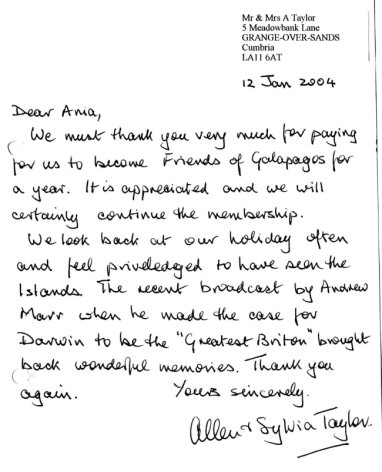 Mr & Mrs A Taylor
5 Meadowbank Lane
GRANGE-OVER-SANDS
Cumbria
LA11 6AT
12 Jan 2004
Dear Ania,
We must thank you very much for paying
for us to become Friends of Galapagos for
a year. It is appreciated and we will
certainly continue the membership.
We look back at our holiday often
and feel priveledged to have seen the
Islands. The recent broadcast by Andrew
Marr when he made the case for
Darwin to be the "Greatest Briton" brought
back wonderful memories. Thank you
again. Yours sincerely.
Allen & Sylvia Taylor.